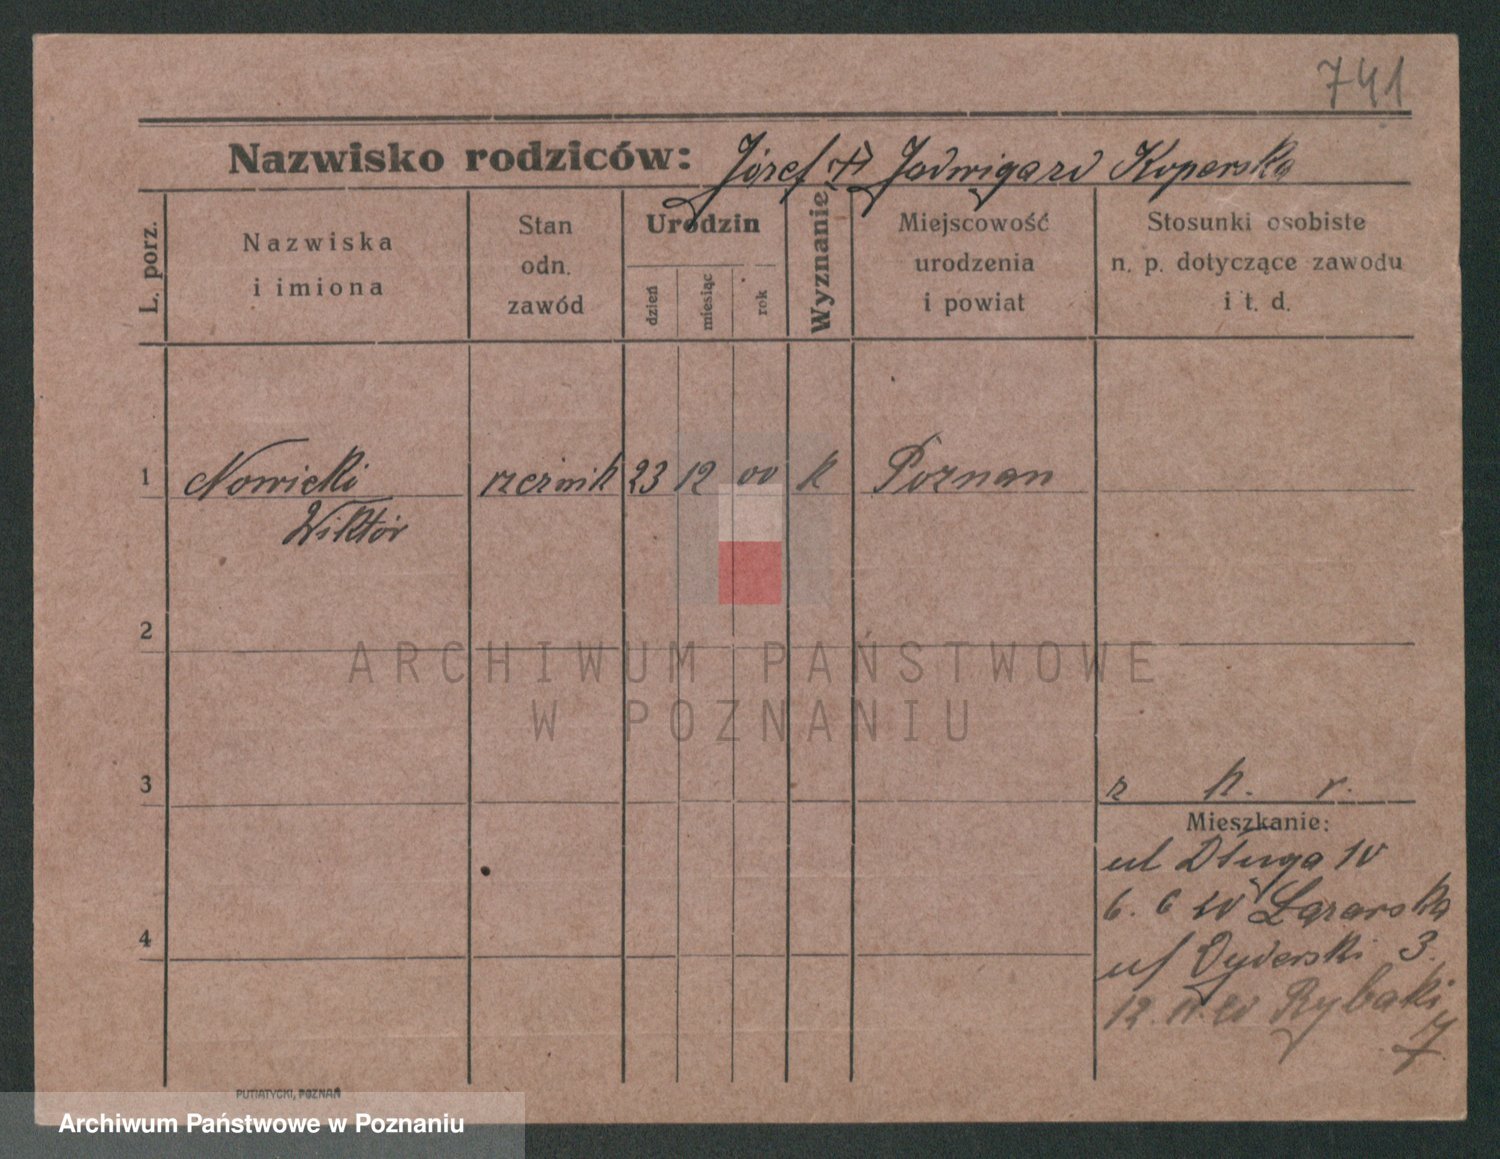 741
Nazwisko rodziców: Józef Jadwiga zd Koperska
L. porz.
Nazwiska
i imiona
Stan
odn.
zawód
Urodzin
dzień
miesiąc
rok
Wyznanie
Miejscowość
urodzenia
i powiat
Stosunki osobiste
n. p. dotyczące zawodu
i t. d.
1 Nowicki rzeźnik 23 12 00 k Poznan
Wiktór
2
ARCHIWUM PAŃSTWOWE
W POZNANIU
3 k. r.
Mieszkanie:
ul Długa 10
6. 6 20 Łazarska
ul 3.
4
12. 20 Rybaki
PUTIATYCKI, POZNAŃ
Archiwum Państwowe w Poznaniu